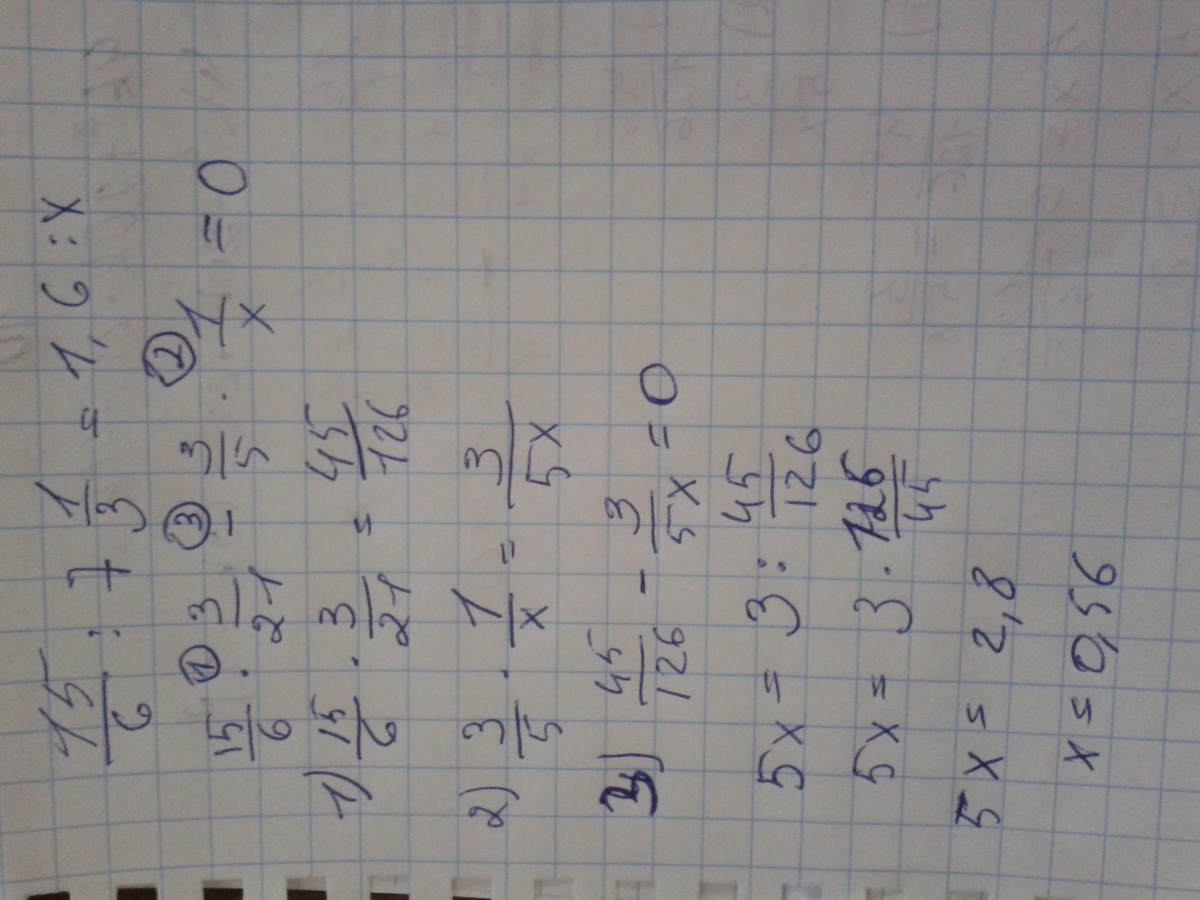 15/6 : 7 1/3 = 1,6 : x
15/6 ① · 3/21 ③ − 3/5 · ② 1/x = 0
1) 15/6 · 3/21 = 45/126
2) 3/5 · 1/x = 3/5x
3) 45/126 − 3/5x = 0
5x = 3 : 45/126
5x = 3 · 126/45
5x = 2,8
x = 0,56